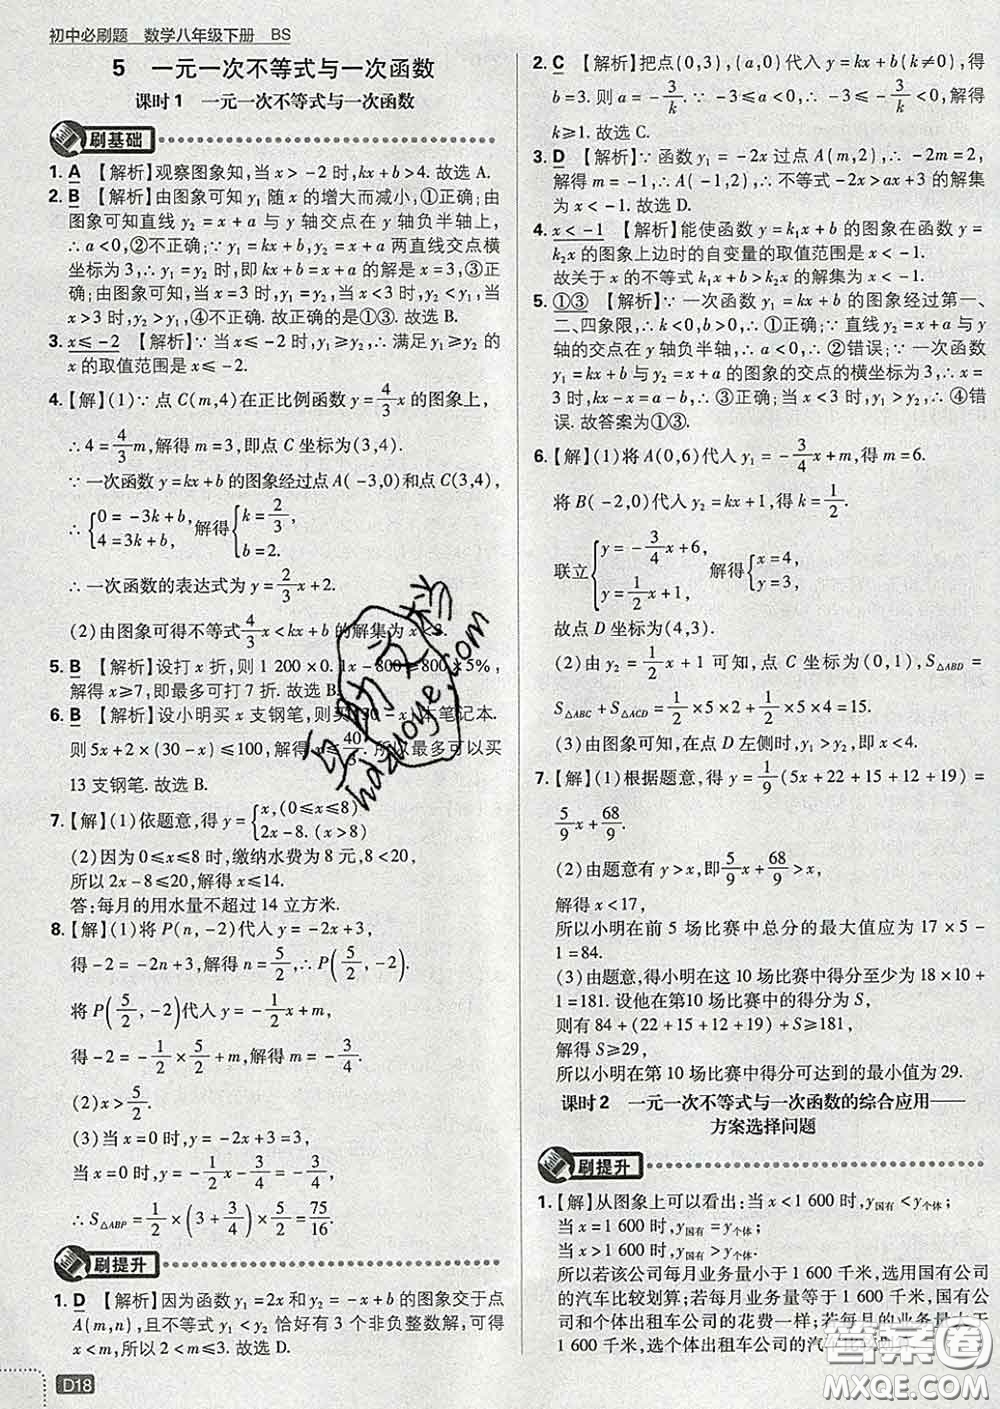 初中必刷题 数学八年级下册 BS
5 一元一次不等式与一次函数
课时1 一元一次不等式与一次函数
刷基础
1. A 【解析】观察图象知,当 x>-2 时,kx+b>4. 故选 A.
2. B 【解析】由图象可知 y₁ 随 x 的增大而减小,①正确;由
图象可知直线 y₂=x+a 与 y 轴交点在 y 轴负半轴上,
∴a<0,②不正确;∵y₁=kx+b,y₂=x+a 两直线交点横
坐标为 3,∴y₁=y₂ 时,即 kx+b=x+a 的解是 x=3,③正
确;由图象可知,当 x<3 时,直线 y₁ 在直线 y₂ 上方,故当
x>3 时,y₂>y₁,④不正确. 故正确的是①③. 故选 B.
3. x≤-2 【解析】∵当 x≤-2 时,y₁≥y₂,∴满足 y₁≥y₂ 的
x 的取值范围是 x≤-2.
4. 【解】(1)∵点 C(m,4)在正比例函数 y=4/3 x 的图象上,
∴4=4/3 m,解得 m=3,即点 C 坐标为(3,4).
∵一次函数 y=kx+b 的图象经过点 A(-3,0)和点 C(3,4),
∴{0=-3k+b, 4=3k+b, 解得{k=2/3, b=2.
∴一次函数的表达式为 y=2/3 x+2.
(2)由图象可得不等式 4/3 x<kx+b 的解集为 x<3.
5. B 【解析】设打 x 折,则 1 200×0.1x-800≥800×5%,
解得 x≥7,即最多可打 7 折. 故选 B.
6. B 【解析】设小明买 x 支钢笔,则买(30-x)本笔记本.
则 5x+2×(30-x)≤100,解得 x≤40/3. 所以最多可以买
13 支钢笔. 故选 B.
7. 【解】(1)依题意,得 y={x,(0≤x≤8) 2x-8.(x>8)
(2)因为 0≤x≤8 时,缴纳水费为 8 元,8<20,
所以 2x-8≤20,解得 x≤14.
答:每月的用水量不超过 14 立方米.
8. 【解】(1)将 P(n,-2)代入 y=-2x+3,
得-2=-2n+3,解得 n=5/2,∴P(5/2,-2).
将 P(5/2,-2)代入 y=-1/2 x+m,
得-2=-1/2×5/2+m,解得 m=-3/4.
(2)x>5/2.
(3)当 x=0 时,y=-2x+3=3;
当 x=0 时,y=-1/2 x-3/4=-3/4.
∴S△ABP=1/2×(3+3/4)×5/2=75/16.
刷提升
1. D 【解析】因为函数 y₁=2x 和 y₂=-x+b 的图象交于点
A(m,n),且不等式 y₁<y₂ 恰好有 3 个非负整数解,可得
2<m≤3,所以 6<b≤9. 故选 D.
D18
2. C 【解析】把点(0,3),(a,0)代入 y=kx+b(k≠0),得
b=3. 则 a=-3/k. ∵-3≤a<0,∴-3≤-3/k<0,解得
k≥1. 故选 C.
3. D 【解析】∵函数 y₁=-2x 过点 A(m,2),∴-2m=2,
解得 m=-1,∴A(-1,2),∴不等式-2x>ax+3 的解集
为 x<-1. 故选 D.
4. x<-1 【解析】能使函数 y=k₁x+b 的图象在函数 y=
k₂x 的图象上边时的自变量的取值范围是 x<-1.
故关于 x 的不等式 k₁x+b>k₂x 的解集为 x<-1.
5. ①③ 【解析】∵一次函数 y₁=kx+b 的图象经过第一、
二、四象限,∴k<0,∴①正确;∵直线 y₂=x+a 与 y
轴的交点在 y 轴负半轴,∴a<0,∴②错误;∵一次函数
y₁=kx+b 与 y₂=x+a 的图象的交点的横坐标为 3,∴当 x=
3 时,kx-x=a-b,∴③正确;当 x<3 时,y₁>y₂,∴④错
误. 故答案为①③.
6. 【解】(1)将 A(0,6)代入 y₁=-3/4 x+m,得 m=6.
将 B(-2,0)代入 y₂=kx+1,得 k=1/2.
联立{y=-3/4 x+6, y=1/2 x+1, 解得{x=4, y=3,
故点 D 坐标为(4,3).
(2)由 y₂=1/2 x+1 可知,点 C 坐标为(0,1),S△ABD=
S△ABC+S△ACD=1/2×5×2+1/2×5×4=15.
(3)由图象可知,在点 D 左侧时,y₁>y₂,即 x<4.
7. 【解】(1)根据题意,得 y=1/9(5x+22+15+12+19)=
5/9 x+68/9.
(2)由题意有 y>x,即 5/9 x+68/9>x,
解得 x<17,
所以小明在前 5 场比赛中总分的最大值应为 17×5-
1=84.
(3)由题意,得小明在这 10 场比赛中得分至少为 18×10+
1=181. 设他在第10 场比赛中的得分为 S,
则有 84+(22+15+12+19)+S≥181,
解得 S≥29,
所以小明在第 10 场比赛中得分可达到的最小值为 29.
课时2 一元一次不等式与一次函数的综合应用——
方案选择问题
刷提升
1. 【解】从图象上可以看出:当 x<1 600时,y国有<y个体;
当 x=1 600 时,y国有=y个体;
当 x>1 600 时,y国有>y个体.
所以若该公司每月业务量小于 1 600 千米,选用国有公司
的汽车比较划算;若每月业务量等于 1 600 千米,国有公
司和个体出租车公司的花费一样;若每月的业务量大于
1 600 千米,选个体出租车公司的汽车
互助文档
hdzuoye.com
答案圈
MXQE.COM